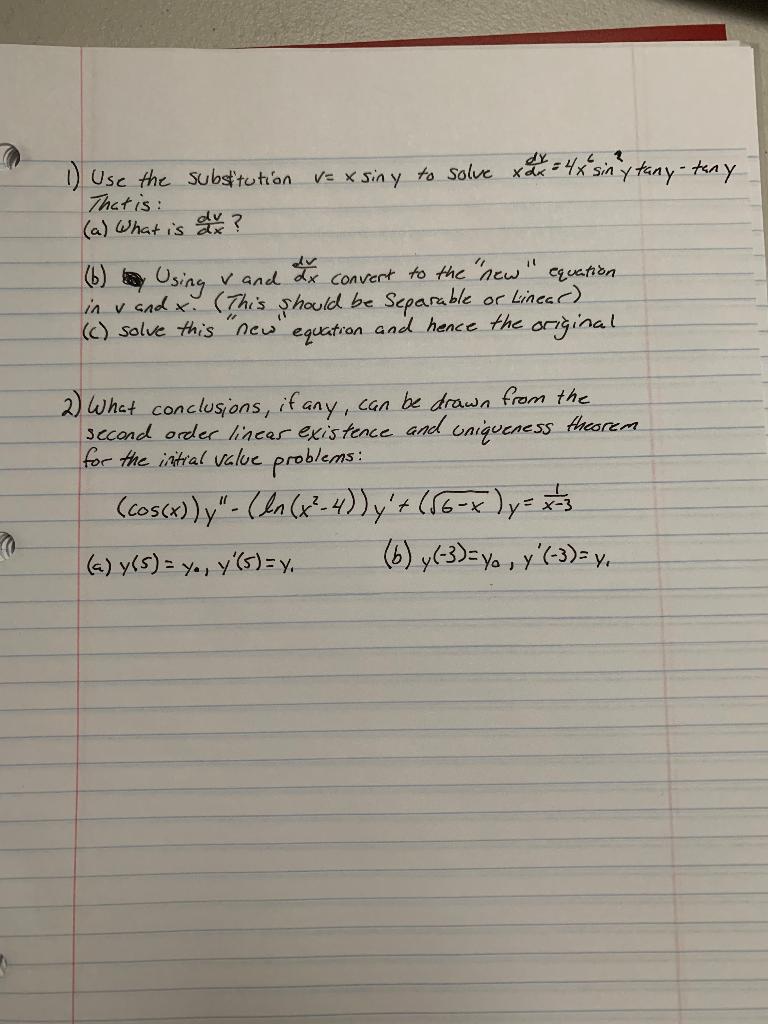 1) Use the substitution v= x sin y to solve x dy/dx = 4x⁶ sin² y tan y - tan y
That is:
(a) What is dv/dx ?
(b) Using v and dv/dx convert to the "new" equation
in v and x. (This should be Separable or Linear)
(c) solve this "new" equation and hence the original
2) What conclusions, if any, can be drawn from the
second order linear existence and uniqueness theorem
for the initial value problems:
(cos(x))y" - (ln(x²-4))y' + (√6-x)y = 1/x-3
(a) y(5) = y₀, y'(5)=y₁ (b) y(-3)=y₀, y'(-3)=y₁